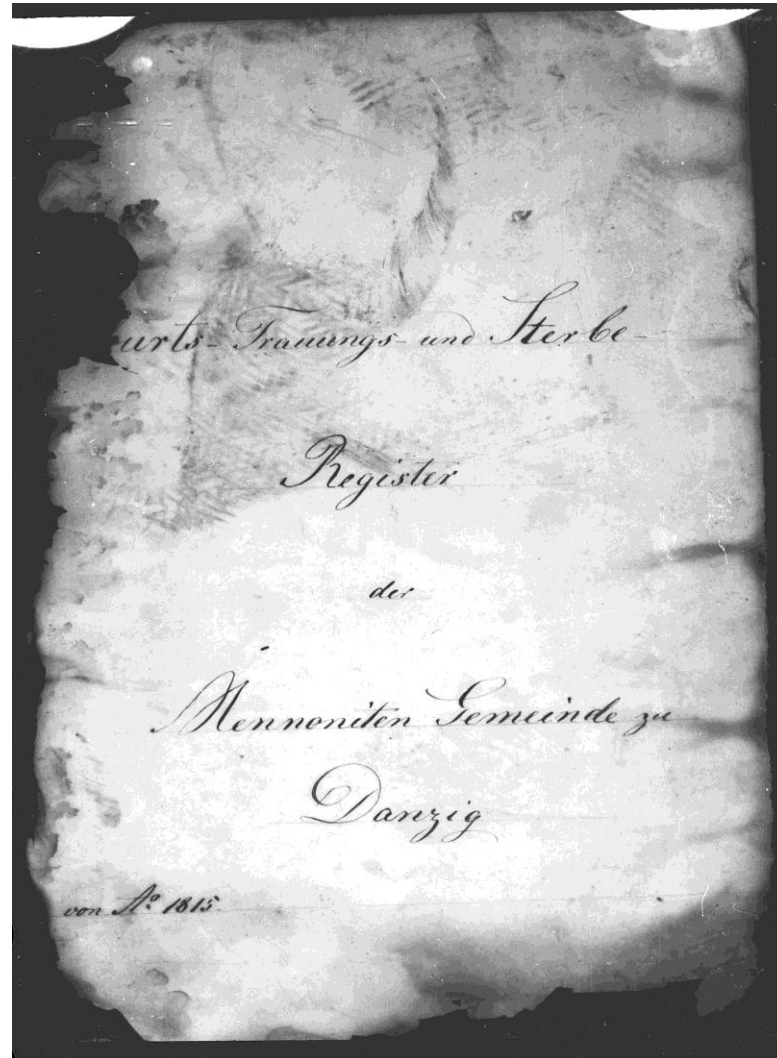 urts-Trauungs- und Sterbe-
Register
der
Mennoniten Gemeinde zu
Danzig
von Aº 1815.